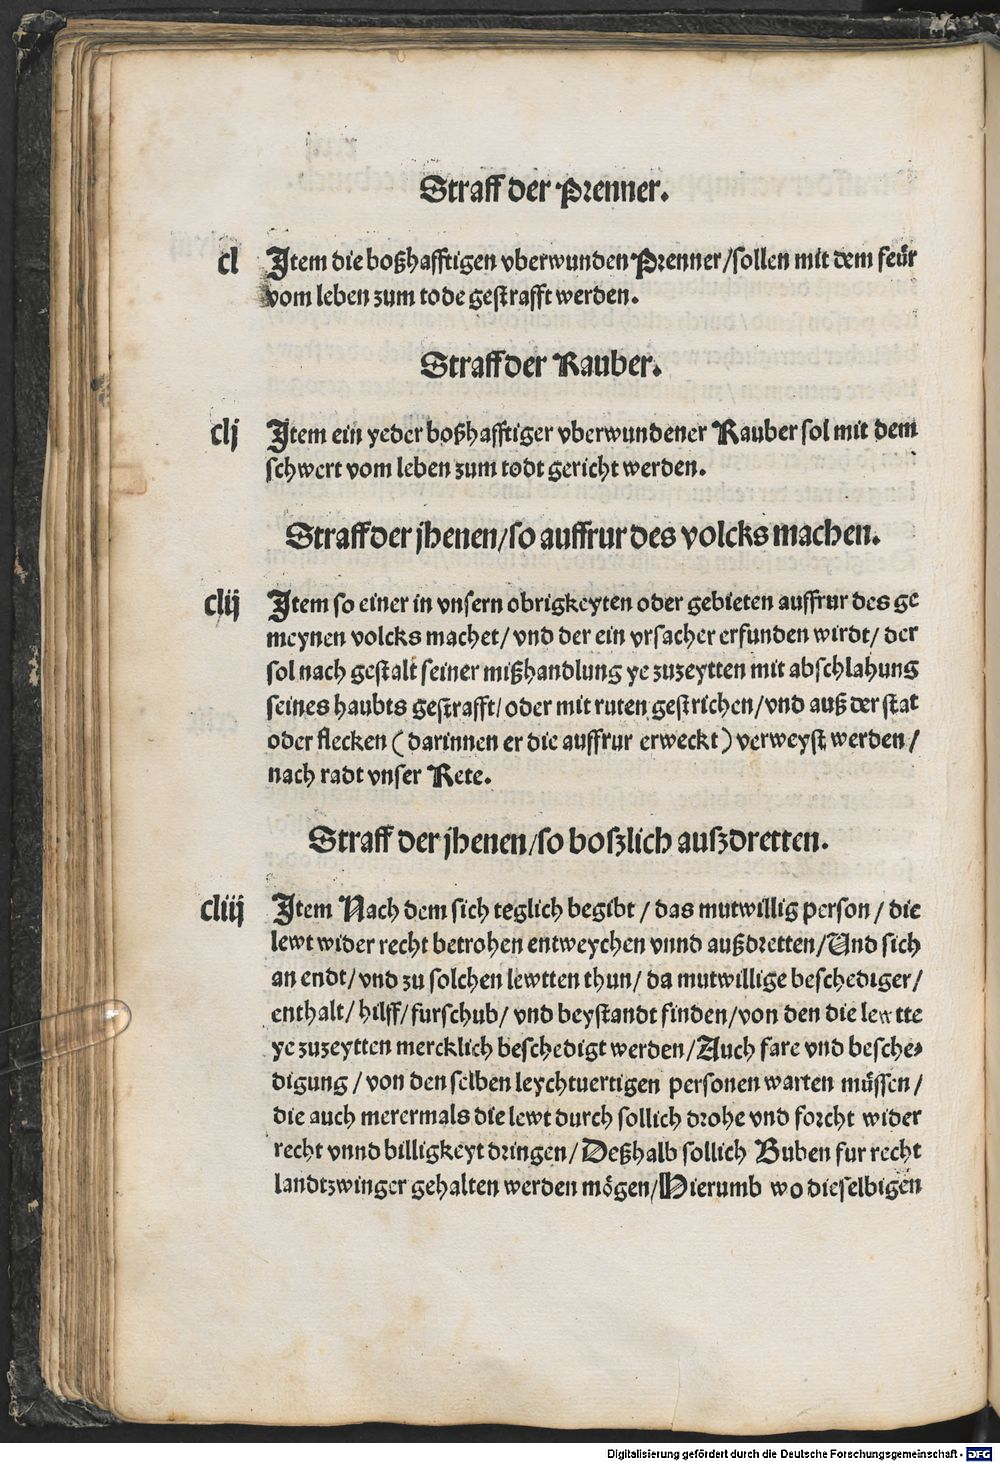 Straff der Prenner.
cl Item die boßhafftigen vberwunden Prenner/sollen mit dem feür
vom leben zum tode gestrafft werden.
Straff der Rauber.
clj Item ein yeder boßhafftiger vberwundener Rauber sol mit dem
schwert vom leben zum todt gericht werden.
Straff der jhenen/so auffrur des volcks machen.
clij Item so einer in vnsern obrigkeyten oder gebieten auffrur des ge
meynen volcks machet/ vnd der ein vrsacher erfunden wirdt/ der
sol nach gestalt seiner mißhandlung ye zuzeytten mit abschlahung
seines haubts gestrafft/ oder mit ruten gestrichen/vnd auß der stat
oder flecken ( darinnen er die auffrur erweckt ) verweyst werden /
nach radt vnser Rete.
Straff der jhenen/so boszlich auszdretten.
cliij Item Nach dem sich teglich begibt / das mutwillig person / die
lewt wider recht betrohen entweychen vnnd außdretten/Und sich
an endt/ vnd zu solchen lewtten thun/ da mutwillige beschediger/
enthalt/ hilff/ furschub/ vnd beystandt finden/von den die lewtte
ye zuzeytten mercklich beschedigt werden/Auch fare vnd besche⸗
digung / von den selben leychtuertigen personen warten müssen/
die auch merermals die lewt durch sollich drohe vnd forcht wider
recht vnnd billigkeyt dringen/ Deßhalb sollich Buben fur recht
landtzwinger gehalten werden mögen/Hierumb wo dieselbigen
Digitalisierung gefördert durch die Deutsche Forschungsgemeinschaft - DFG